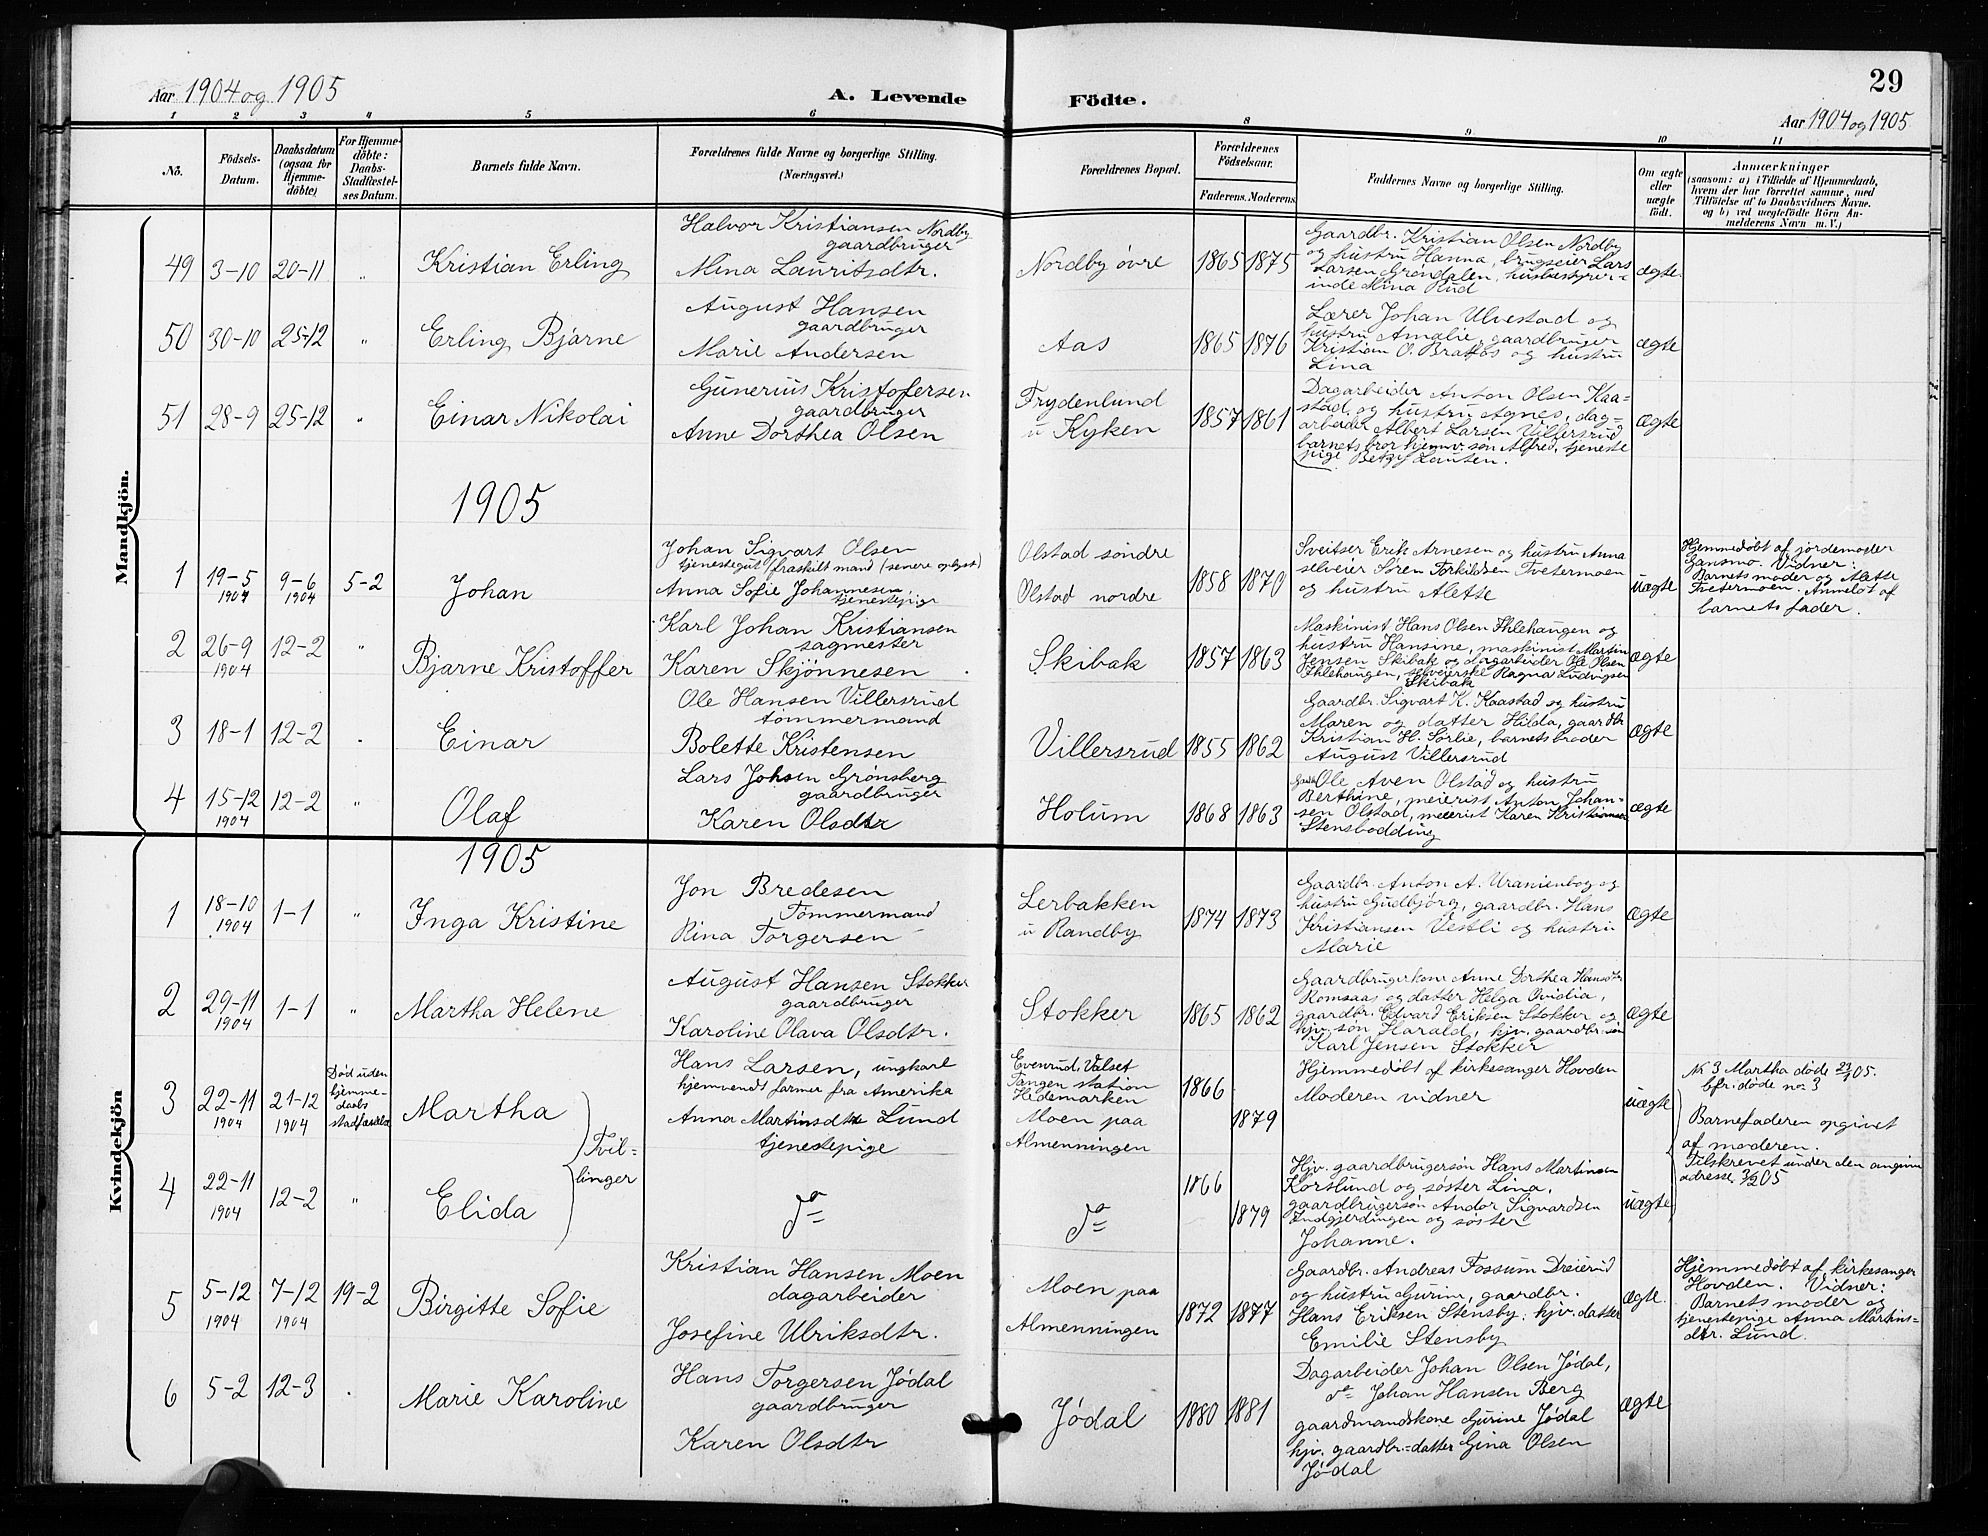 Aar 1904 og 1905
A. Levende
Födte.
29
Aar 1904 og 1905
1 2 3 4 5 6 8 9 10 11
No.
Födsels-
Datum.
Daabsdatum
(ogsaa for
Hjemme-
döbte)
For Hjemme-
döbte:
Daabs-
Stadfæstel-
ses Datum.
Barnets fulde Navn.
Forældrenes fulde Navne og borgerlige Stilling.
(Næringsvei.)
Forældrenes Bopæl.
Forældrenes
Födselsaar.
Faderens. Moderens.
Faddernes Navne og borgerlige Stilling.
Om ægte
eller
uægte
födt.
Anmærkninger
(saasom: a) i Tilfælde af Hjemmedaab,
hvem der har forrettet samme, med
Tilföielse af to Daabsvidners Navne.
og b) ved uægtefödte Börn An-
melderens Navn m. V.)
Mandkjön.
49 3-10 20-11 "
Kristian Erling
Halvor Kristiansen Nordby
gaardbruger
Mina Lauritsdtr.
Nordby øvre
1865 1875
Gaardbr. Kristian Olsen Nordby
og hustru Hanna, brugseier Lars
Larsen Grøndalen, husbestyrer-
inde Mina Rud
ægte.
50 30-10 25-12 "
Erling Bjarne
August Hansen
gaardbruger
Marie Andersen
Aas
1865 1876
Lærer Johan Ulvestad og
hustru Amalie, gaardbruger
Kristian O. Bratfos og hustru
Lina
ægte
51 28-9 25-12 "
Einar Nikolai
Gunerius Kristofersen
gaardbruger
Anne Dorthea Olsen
Frydenlund
u Kyken
1857 1861
Dagarbeider Anton Olsen Kaa-
stad og hustru Agnes, dag-
arbeider Albert Larsen Villersrud
barnets bror hjemmv. søn Alfred, tjeneste
pige Betzy Lausen.
ægte
1905
1 19-5 1904 9-6 1904 5-2
Johan
Johan Sigvart Olsen
tjenestegut / fraskilt mand (senere oplyst)
Anna Sofie Johannesen
tjenestepige
Olstad søndre
Olstad nordre
1858 1870
Sveitser Erik Arnesen og hustru Anna
selveier Søren Torkildsen Tvetermoen
og hustru Alette
uægte
Hjemmedøbt af jordemoder
Gansmo. Vidner:
Barnets moder og Alette
Tvetermoen. Anmeldt af
barnets fader.
2 26-9 1904 12-2 "
Bjarne Kristoffer
Karl Johan Kristiansen
sagmester
Karen Skjønnesen
Skibak
1857 1863
Maskinist Hans Olsen Ihlehaugen og
hustru Hansine, maskinist Martin
Jensen Skibak og dagarbeider Ole Olsen
Ihlehaugen, selveierske Ragna Ludvigsen
Skibak
ægte
3 18-1 12-2 "
Einar
Ole Hansen Villersrud
tømmermand
Bolette Kristensen
Villersrud
1855 1862
Gaardbr. Sigvart K. Kaastad og hustru
Maren og datter Hilda, gaardbr
Kristian H. Sørlie, barnets broder
August Villersrud
ægte
4 15-12 1904 12-2 "
Olaf
Lars Johsen Grønsberg
gaardbruger
Karen Olsdtr
Holum
1868 1863
Gaardb. Ole Aven Olstad og hustru
Berthine, meierist Anton Johan-
sen Olstad, meierist Karen Kristiansen
Stensbodding
ægte
Kvindekjön
1905
1 18-10 1904 1-1 "
Inga Kristine
Jon Bredesen
Tømmermand
Rina Torgersen
Lerbakken
u Randby
1874 1873
Gaardbr. Anton A. Uranienbog og
hustru Gudbjörg, gaardbr. Hans
Kristiansen Vestli og hustru
Marie
ægte
2 29-11 1904 1-1 "
Martha Helene
August Hansen Stokker
gaardbruger
Karoline Olava Olsdtr.
Stokker
1865 1862
Gaardbrugerkone Anne Dorthea Hansdtr
Romsaas og datter Helga Ovidia,
gaardbr. Edvard Eriksen Stokker og
hjv. søn Harald, hjv. gaardbr. søn
Karl Jensen Stokker
ægte
3 22-11 1904 21-12 1904
Død uden
hjemme-
daabs
stadfæstelse
Martha
Tvil-
linger
Hans Larsen, ungkarl
hjemvendt farmer fra Amerika
Anna Martinsdtr Lund
tjenestepige
Evenrud, Valset
Tangen station
Hedemarken
Moen paa
Almenningen
1866
1879
Hjemmedøbt af kirkesanger Hovden
Moderen vidner
uægte
No 3 Martha døde 23/1 05.
bfr. døde no: 3
Barnefaderen opgivet
af moderen.
Tilskrevet under den angivne
adresse 3/2 05
4 22-11 1904 12-2 "
Elida
do
do
1866
1879
Hjv. gaardbrugersøn Hans Martinsen
Korslund og søster Lina,
gaardbrugersøn Andor Sigvardsen
Indgjerdingen og søster
Johanne.
uægte
5 5-12 1904 7-12 1904 19-2
Birgitte Sofie
Kristian Hansen Moen
dagarbeider
Josefine Ulriksdtr.
Moen paa
Almenningen
1872 1877
Gaardbr. Andreas Fossum Dreierud
og hustru Gurine, gaardbr.
Hans Eriksen Stensby, hjv. datter
Emilie Stensby
ægte.
Hjemmedøbt af kirkesanger
Hovden. Vidner:
Barnets moder og
tjenestepige Anna Martins-
dtr. Lund.
6 5-2 12-3 "
Marie Karoline
Hans Torgersen Jødal
gaardbruger
Karen Olsdtr
Jødal
1880 1881
Dagarbeider Johan Olsen Jødal,
do Johan Hansen Berg
gaardmandskone Gurine Jødal
hjv. gaardbr.=datter Gina Olsen
Jødal
ægte